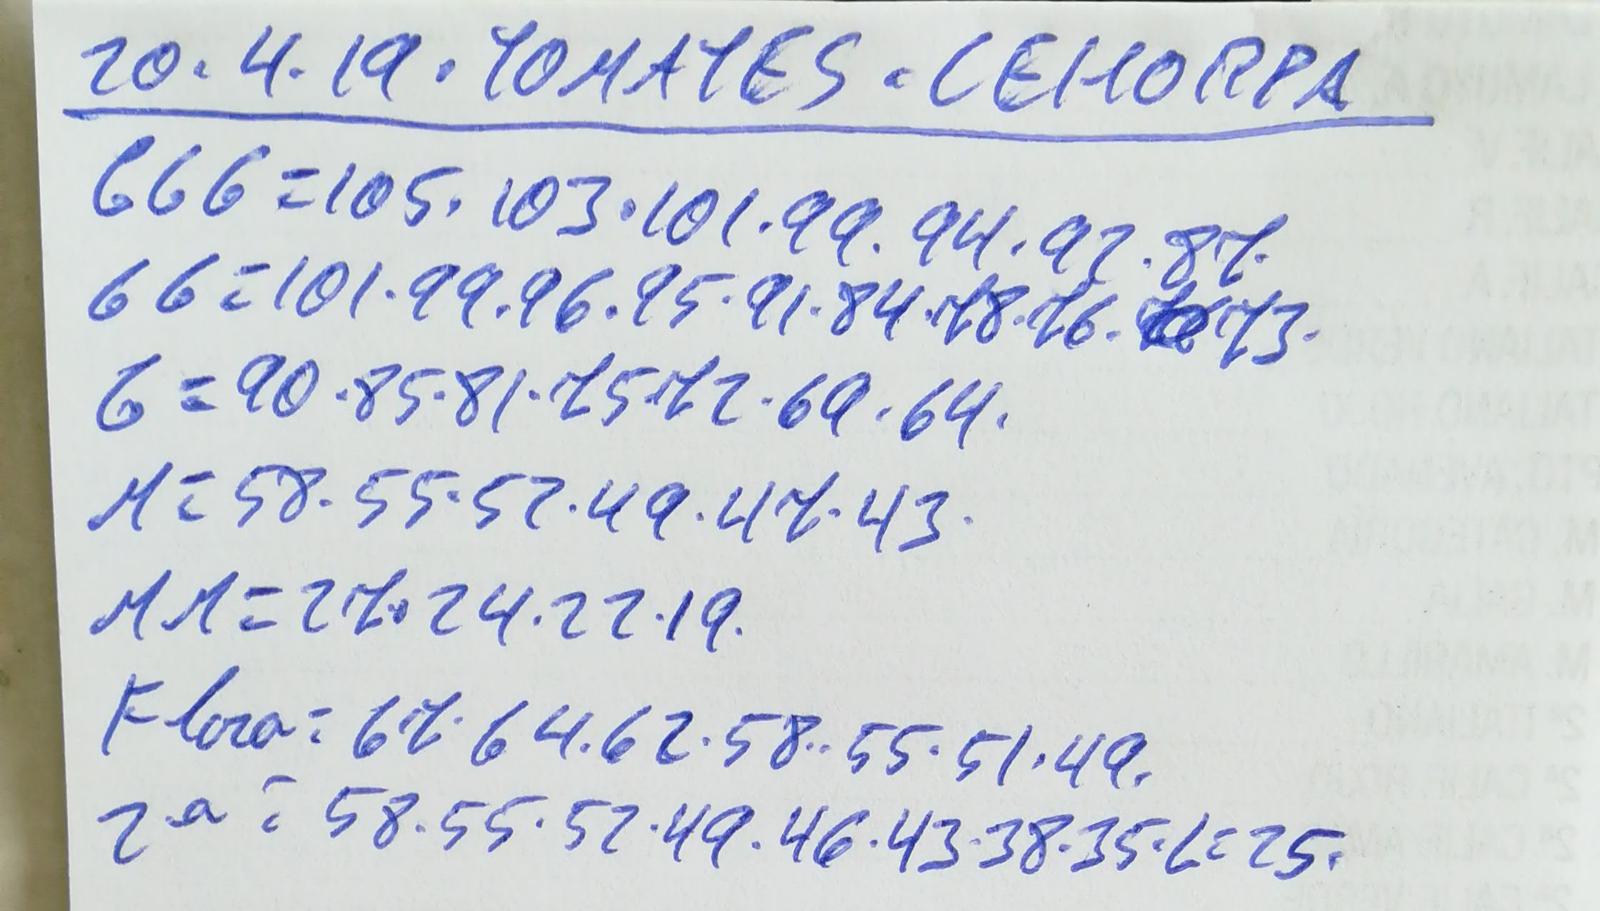 20.4.19. TOMATES. CEHORPA
GGG=105.103.101.99.94.92.87.
GG=101.99.96.95.91.84.78.76.73.
G=90.85.81.75.72.69.64.
M=58.55.52.49.47.43.
MM=27.24.22.19.
Flora=67.64.62.58..55.51.49.
2ª=58.55.52.49.46.43.38.35.L=25.